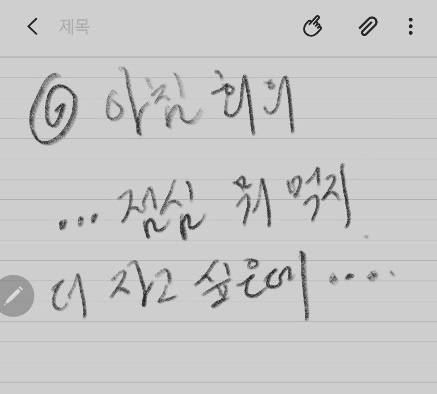 제목
6 아침 회의
... 점심 뭐 먹지
더 자고 싶은데 ....